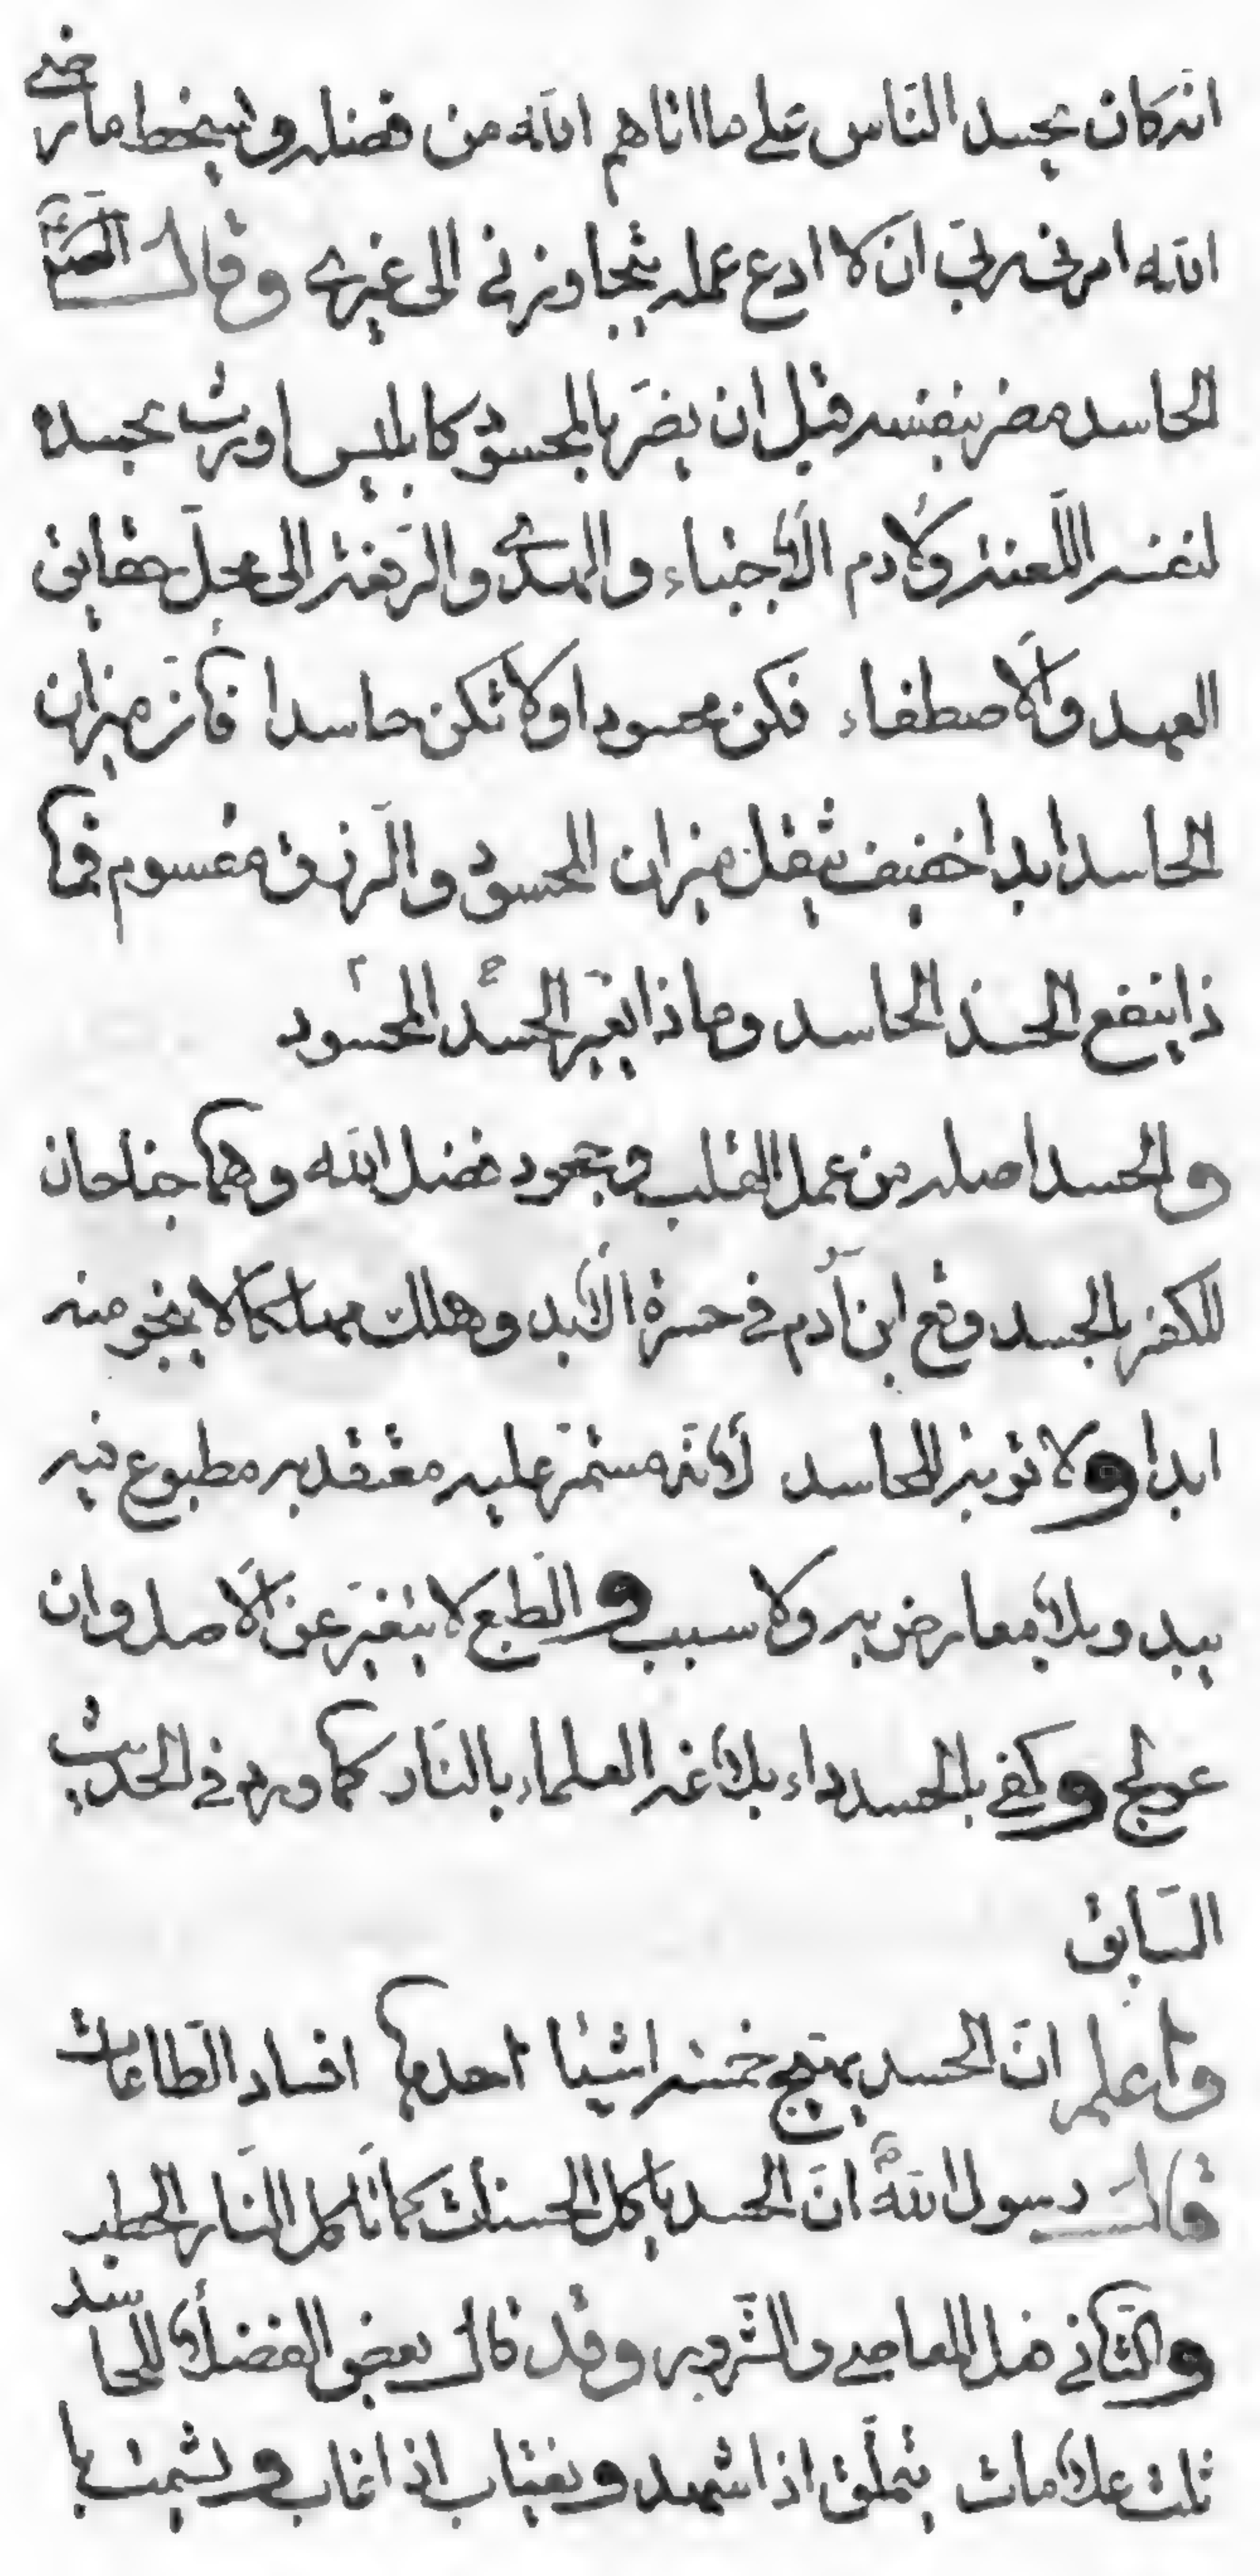 انه كان يحسد الناس على ما اتاهم الله من فضله ويسخط ما رضى
الله امرنى ربى ان لا ادع عمله يتجاوزنى الى غيرى وقال الص
الحاسد مضر بنفسه قبل ان يضر بالمحسود كابليس اورث بحسده
لنفسه اللعنة ولادم الاجتباء والهدى والرفعة الى محل حقايق
العهد والاصطفاء فكن محسودا ولا تكن حاسدا فان ميزان
الحاسد ابدا خفيف بثقل ميزان المحسود والرزق مقسوم فما
ذا ينفع الحسد الحاسد وما ذا يضر الحسد المحسود
والحسد اصله من عمى القلب وجحود فضل الله وهما جناحان
للكفر بالحسد وقع ابن آدم فى حسرة الابد وهلك مهلكا لا ينجو منه
ابدا ولا توبة للحاسد لانه مستمر عليه معتقد به مطبوع فيه
يبدو بلا معارض به ولا سبب والطبع لا يتغير عن الاصل وان
عولج وكفى بالحسد داء بلاغه العلماء بالنار كما ورد فى الحديث
السابق
واعلم ان الحسد يهتج خمسة اشيا احدها افساد الطاعات
قال رسول الله ص ان الحسد ياكل الحسنات كما تاكل النار الحطب
والثانى فعل المعاصى والشرور وقد قال بعض الفضلا للحاسد
ثلث علامات يتملق اذا شهد ويغتاب اذا غاب ويشمت با